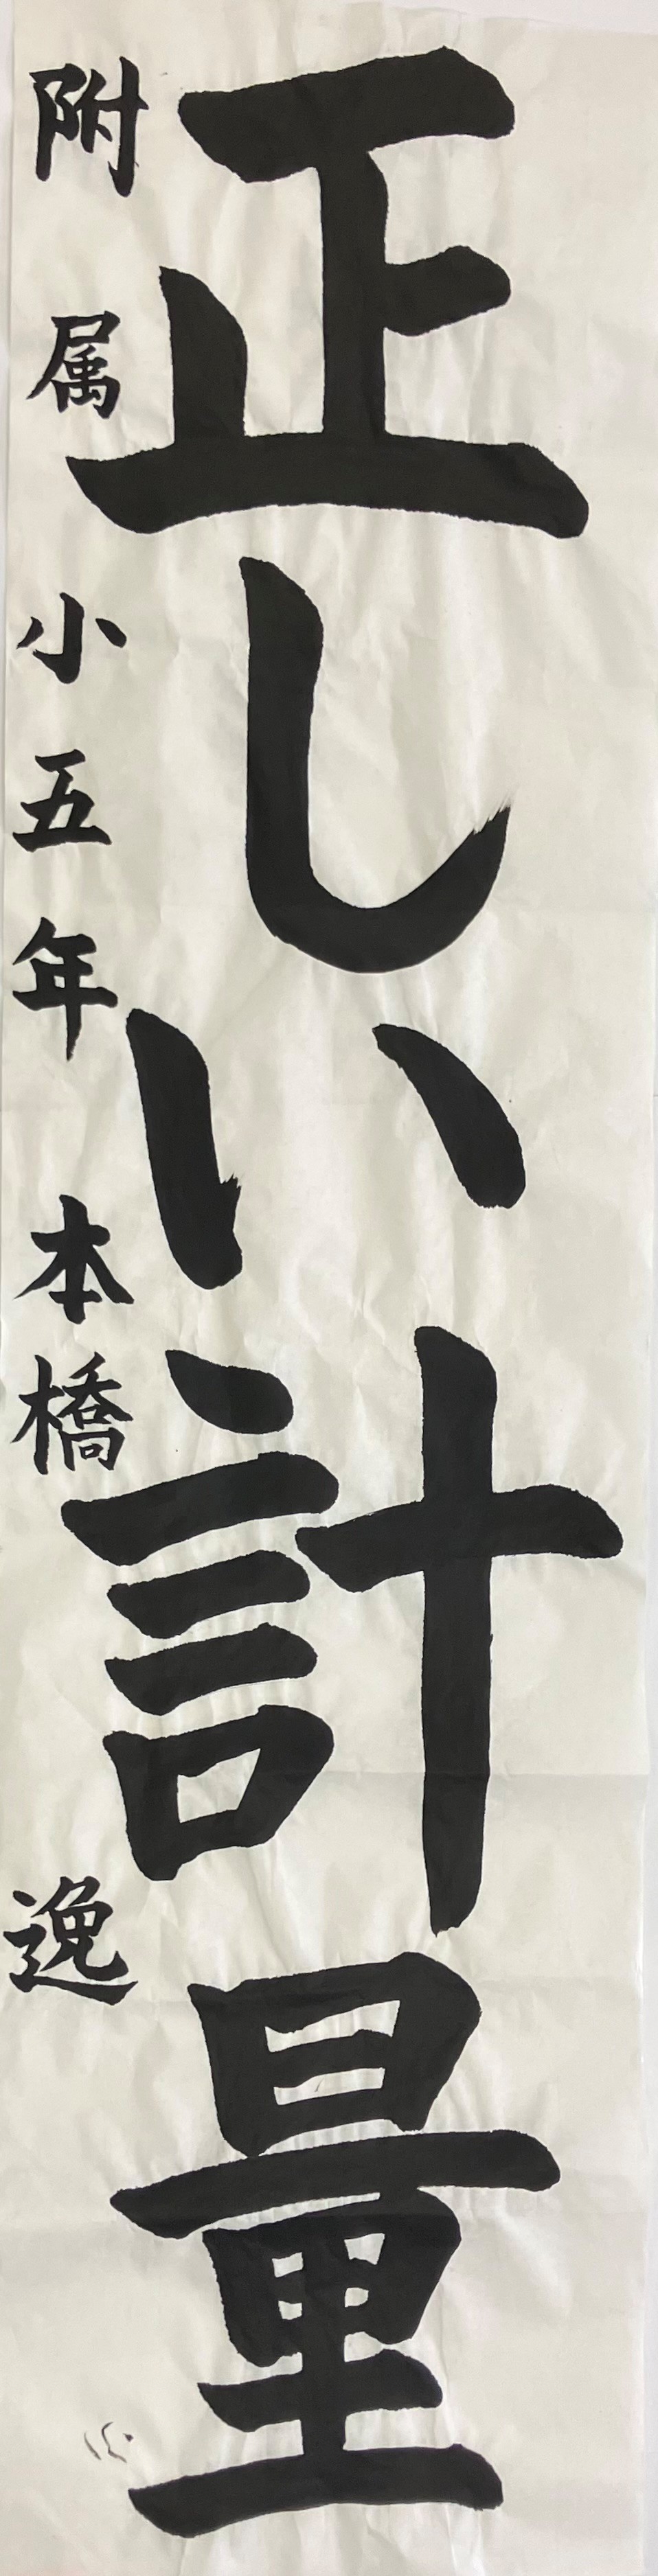 正しい計量
附属小五年 本橋 逸